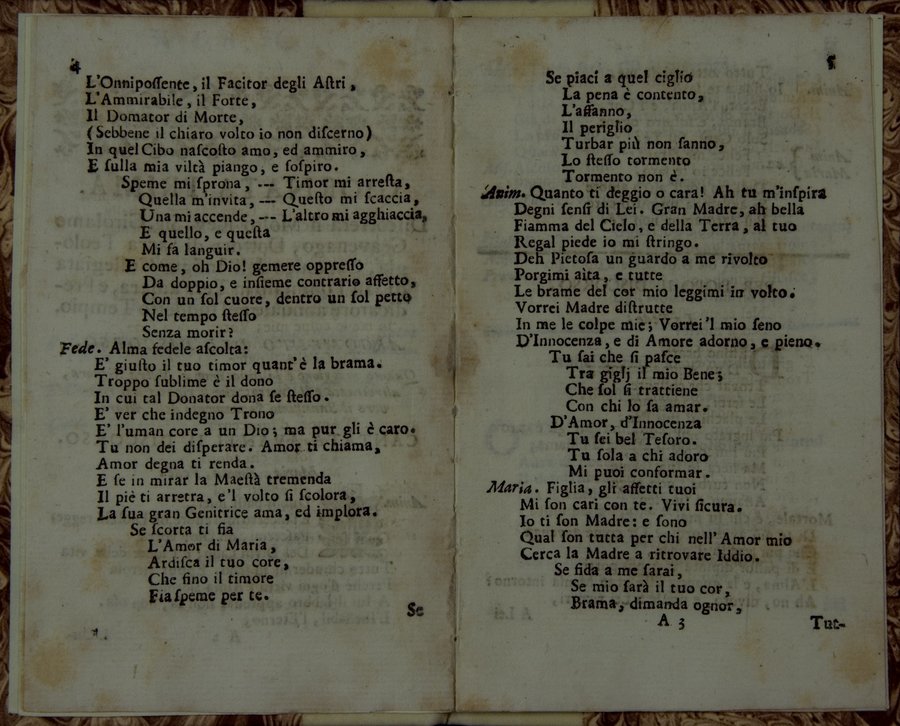 4
L'Onnipoſſente, il Facitor degli Aſtri,
L'Ammirabile, il Forte,
Il Domator di Morte,
(Sebbene il chiaro volto io non diſcerno)
In quel Cibo naſcoſto amo, ed ammiro,
E ſulla mia viltà piango, e ſoſpiro.
Speme mi ſprona, --- Timor mi arreſta,
Quella m'invita, --- Queſto mi ſcaccia,
Una mi accende, --- L'altro mi agghiaccia,
E quello, e queſta
Mi fa languir.
E come, oh Dio! gemere oppreſſo
Da doppio, e inſieme contrario affetto,
Con un ſol cuore, dentro un ſol petto
Nel tempo ſteſſo
Senza morir?
Fede. Alma fedele aſcolta:
E' giuſto il tuo timor quant'è la brama.
Troppo ſublime è il dono
In cui tal Donator dona ſe ſteſſo.
E' ver che indegno Trono
E' l'uman core a un Dio; ma pur gli è caro.
Tu non dei diſperare. Amor ti chiama,
Amor degna ti renda.
E ſe in mirar la Maeſtà tremenda
Il piè ti arretra, e'l volto ſi ſcolora,
La ſua gran Genitrice ama, ed implora.
Se ſcorta ti fia
L'Amor di Maria,
Ardiſca il tuo core,
Che fino il timore
Fia ſpeme per te.
Se
5
Se piaci a quel ciglio
La pena è contento,
L'affanno,
Il periglio
Turbar più non ſanno,
Lo ſteſſo tormento
Tormento non è.
Anim. Quanto ti deggio o cara! Ah tu m'inſpira
Degni ſenſi di Lei. Gran Madre, ah bella
Fiamma del Cielo, e della Terra, al tuo
Regal piede io mi ſtringo.
Deh Pietoſa un guardo a me rivolto
Porgimi aita, e tutte
Le brame del cor mio leggimi in volto.
Vorrei Madre diſtrutte
In me le colpe mie; Vorrei'l mio ſeno
D'Innocenza, e di Amore adorno, e pieno.
Tu ſai che ſi paſce
Tra giglj il mio Bene;
Che ſol ſi trattiene
Con chi lo ſa amar.
D'Amor, d'Innocenza
Tu ſei bel Teſoro.
Tu ſola a chi adoro
Mi puoi conformar.
Maria. Figlia, gli affetti tuoi
Mi ſon cari con te. Vivi ſicura.
Io ti ſon Madre: e ſono
Qual ſon tutta per chi nell' Amor mio
Cerca la Madre a ritrovare Iddio.
Se fida a me ſarai,
Se mio ſarà il tuo cor,
Brama, dimanda ognor,
A 3
Tut-